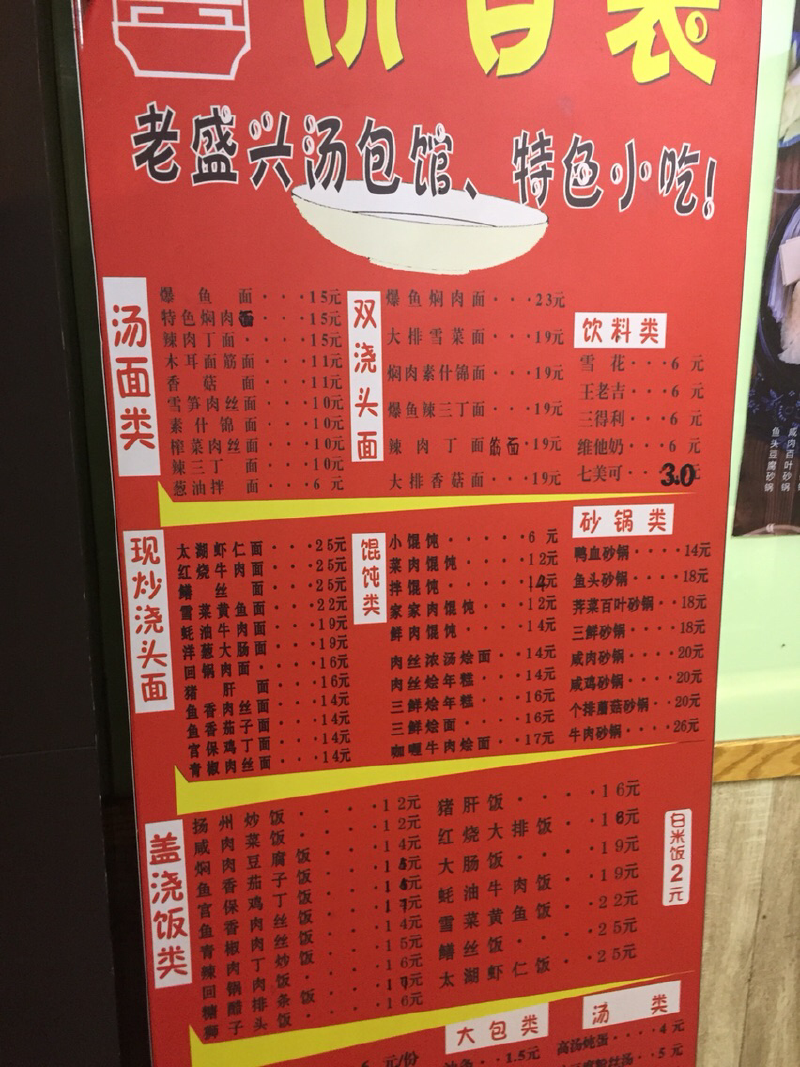 价目表
老盛兴汤包馆、特色小吃!
汤面类
爆鱼面···15元
特色焖肉面···15元
辣肉丁面···15元
木耳面筋面···11元
香菇面···11元
雪笋肉丝面···10元
素什锦面···10元
榨菜肉丝面···10元
辣三丁面···10元
葱油拌面···6元
双浇头面
爆鱼焖肉面···23元
大排雪菜面···19元
焖肉素什锦面···19元
爆鱼辣三丁面···19元
辣肉丁面筋面·19元
大排香菇面···19元
饮料类
雪花···6元
王老吉···6元
三得利···6元
维他奶···6元
七美可··3.0
现炒浇头面
太湖虾仁面···25元
红烧牛肉面···25元
鳝丝面···25元
雪菜黄鱼面···22元
蚝油牛肉面···19元
洋葱大肠面···19元
回锅肉面···16元
猪肝面···16元
鱼香肉丝面···14元
鱼香茄子面···14元
宫保鸡丁面···14元
青椒肉丝面···14元
馄饨类
小馄饨·····6元
菜肉馄饨····12元
拌馄饨·····14元
家家肉馄饨···12元
鲜肉馄饨····14元
肉丝浓汤烩面··14元
肉丝烩年糕···14元
三鲜烩年糕···16元
三鲜烩面····16元
咖喱牛肉烩面··17元
砂锅类
鸭血砂锅····14元
鱼头砂锅····18元
荠菜百叶砂锅··18元
三鲜砂锅····18元
咸肉砂锅····20元
咸鸡砂锅····20元
个排蘑菇砂锅··20元
牛肉砂锅····26元
盖浇饭类
扬州炒饭····12元
咸肉菜饭····12元
焖肉豆腐饭···14元
鱼香茄子饭
宫保鸡丁饭
鱼香肉丝饭
青椒肉丝饭···14元
辣肉丁炒饭···15元
回锅肉饭····16元
糖醋排条饭
狮子头饭····16元
猪肝饭····16元
红烧大排饭··16元
大肠饭····19元
蚝油牛肉饭··19元
雪菜黄鱼饭··22元
鳝丝饭····25元
太湖虾仁饭··25元
白米饭2元
元/份
大包类
1.5元
汤类
高汤炖蛋···4元
粉丝汤··5元
鱼头豆腐砂锅
咸肉百叶砂锅